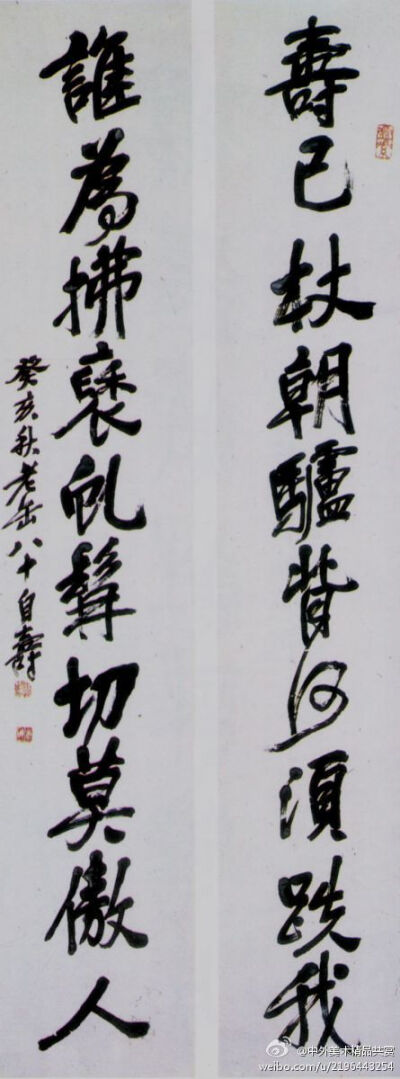 壽已杖朝驢背何須跌我
誰為拂褎虬髯切莫傲人
癸亥秋老缶八十自壽
@中外美术精品共赏
weibo.com/u/2196443254